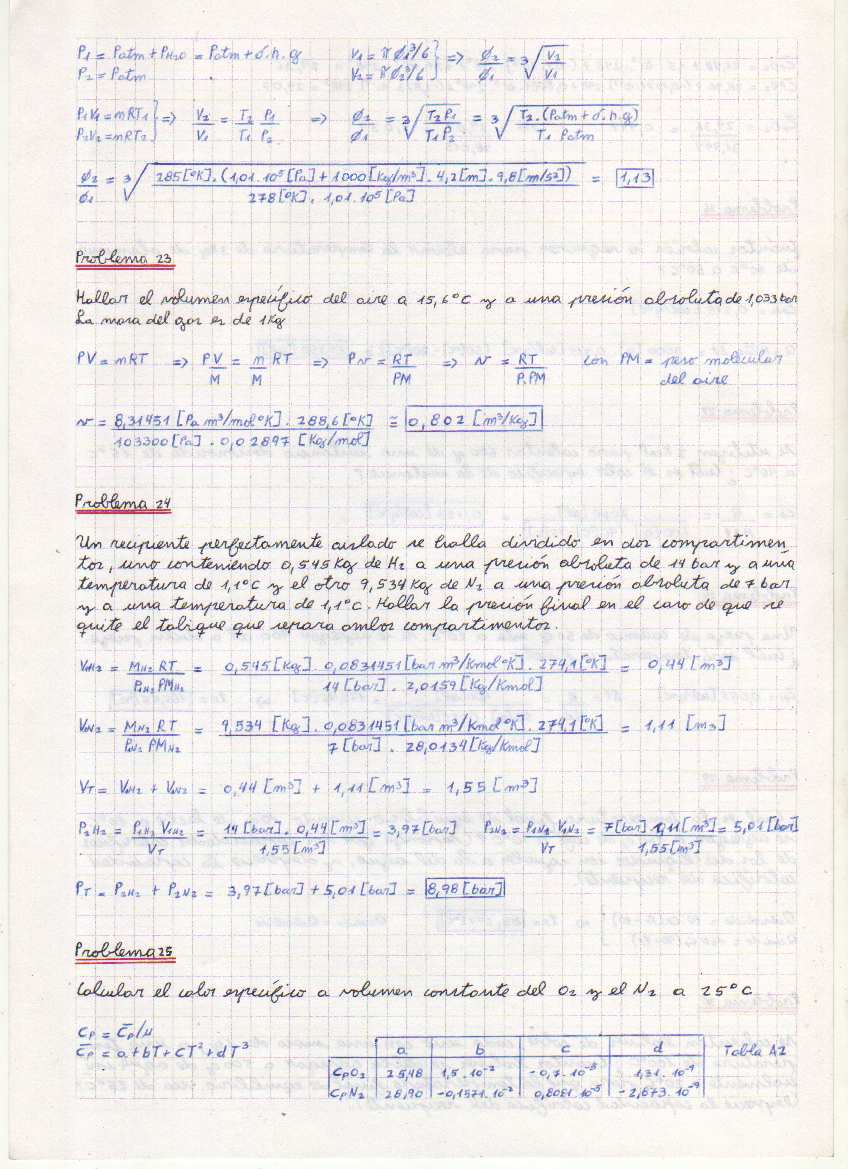 P1 = Patm + PH2O = Patm + δ.h.g    V1 = π Ø1³/6 } => Ø2/Ø1 = ³√(V2/V1)
P2 = Patm    V2 = π Ø2³/6
P1V1 = mRT1 } => V2/V1 = T2 P1/T1 P2 => Ø2/Ø1 = ³√(T2 P1/T1 P2) = ³√(T2.(Patm + δ.h.g)/T1 Patm)
P2V2 = mRT2
Ø2/Ø1 = ³√(285[°K].(1,01.10⁵[Pa] + 1000[Kg/m³].4,2[m].9,8[m/s²])/278[°K].1,01.10⁵[Pa]) = 1,13
Problema 23
Hallar el volumen específico del aire a 15,6°C y a una presión absoluta de 1,033 bar
La masa del gas es de 1Kg
PV = mRT => PV/M = m/M RT => Pv = RT/PM => v = RT/P.PM con PM = peso molecular
del aire
v = 8,31451[Pa m³/mol°K].288,6[°K]/103300[Pa].0,02897[Kg/mol] ≅ 0,802 [m³/Kg]
Problema 24
Un recipiente perfectamente aislado se halla dividido en dos compartimen
tos, uno conteniendo 0,545 Kg de H2 a una presión absoluta de 14 bar y a una
temperatura de 1,1°C y el otro 9,534 Kg de N2 a una presión absoluta de 7 bar
y a una temperatura de 1,1°C. Hallar la presión final en el caso de que se
quite el tabique que separa ambos compartimentos.
V1H2 = MH2 RT/P1H2 PMH2 = 0,545[Kg].0,0831451[bar m³/Kmol°K].274,1[°K]/14[bar].2,0159[Kg/Kmol] = 0,44 [m³]
V1N2 = MN2 RT/P1N2 PMN2 = 9,534 [Kg].0,0831451[bar m³/Kmol°K].274,1[°K]/7[bar].28,0134[Kg/Kmol] = 1,11 [m3]
VT = V1H2 + V1N2 = 0,44 [m³] + 1,11 [m³] = 1,55 [m³]
P2H2 = P1H2 V1H2/VT = 14[bar].0,44[m³]/1,55[m³] = 3,97[bar]    P2N2 = P1N2 V1N2/VT = 7[bar] 1,11[m³]/1,55[m³] = 5,01[bar]
PT = P2H2 + P2N2 = 3,97[bar] + 5,01[bar] = 8,98[bar]
Problema 25
Calcular el calor específico a volumen constante del O2 y el N2 a 25°C
CP = C̄P/μ
C̄P = a + bT + cT² + dT³
a b c d Tabla A2
CPO2 25,48 1,5.10⁻² -0,7.10⁻⁵ 1,31.10⁻⁹
CPN2 28,90 -0,1571.10⁻² 0,8081.10⁻⁵ -2,873.10⁻⁹